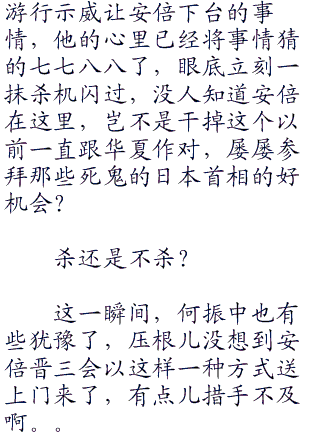 游行示威让安倍下台的事
情，他的心里已经将事情猜
的七七八八了，眼底立刻一
抹杀机闪过，没人知道安倍
在这里，岂不是干掉这个以
前一直跟华夏作对，屡屡参
拜那些死鬼的日本首相的好
机会？
杀还是不杀？
这一瞬间，何振中也有
些犹豫了，压根儿没想到安
倍晋三会以这样一种方式送
上门来了，有点儿措手不及
啊。。